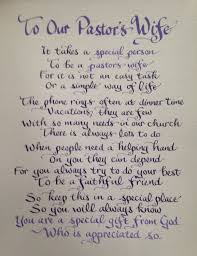 To Our Pastor's Wife
It takes a special person
To be a pastor's wife
For it is not an easy task
Or a simple way of life
The phone rings often at dinner time
Vacations, they are few
With so many needs in our church
There is always lots to do
When people need a helping hand
On you they can depend
For you always try to do your best
To be a faithful friend
So keep this in a special place
So you will always know
You are a special gift from God
Who is appreciated so.